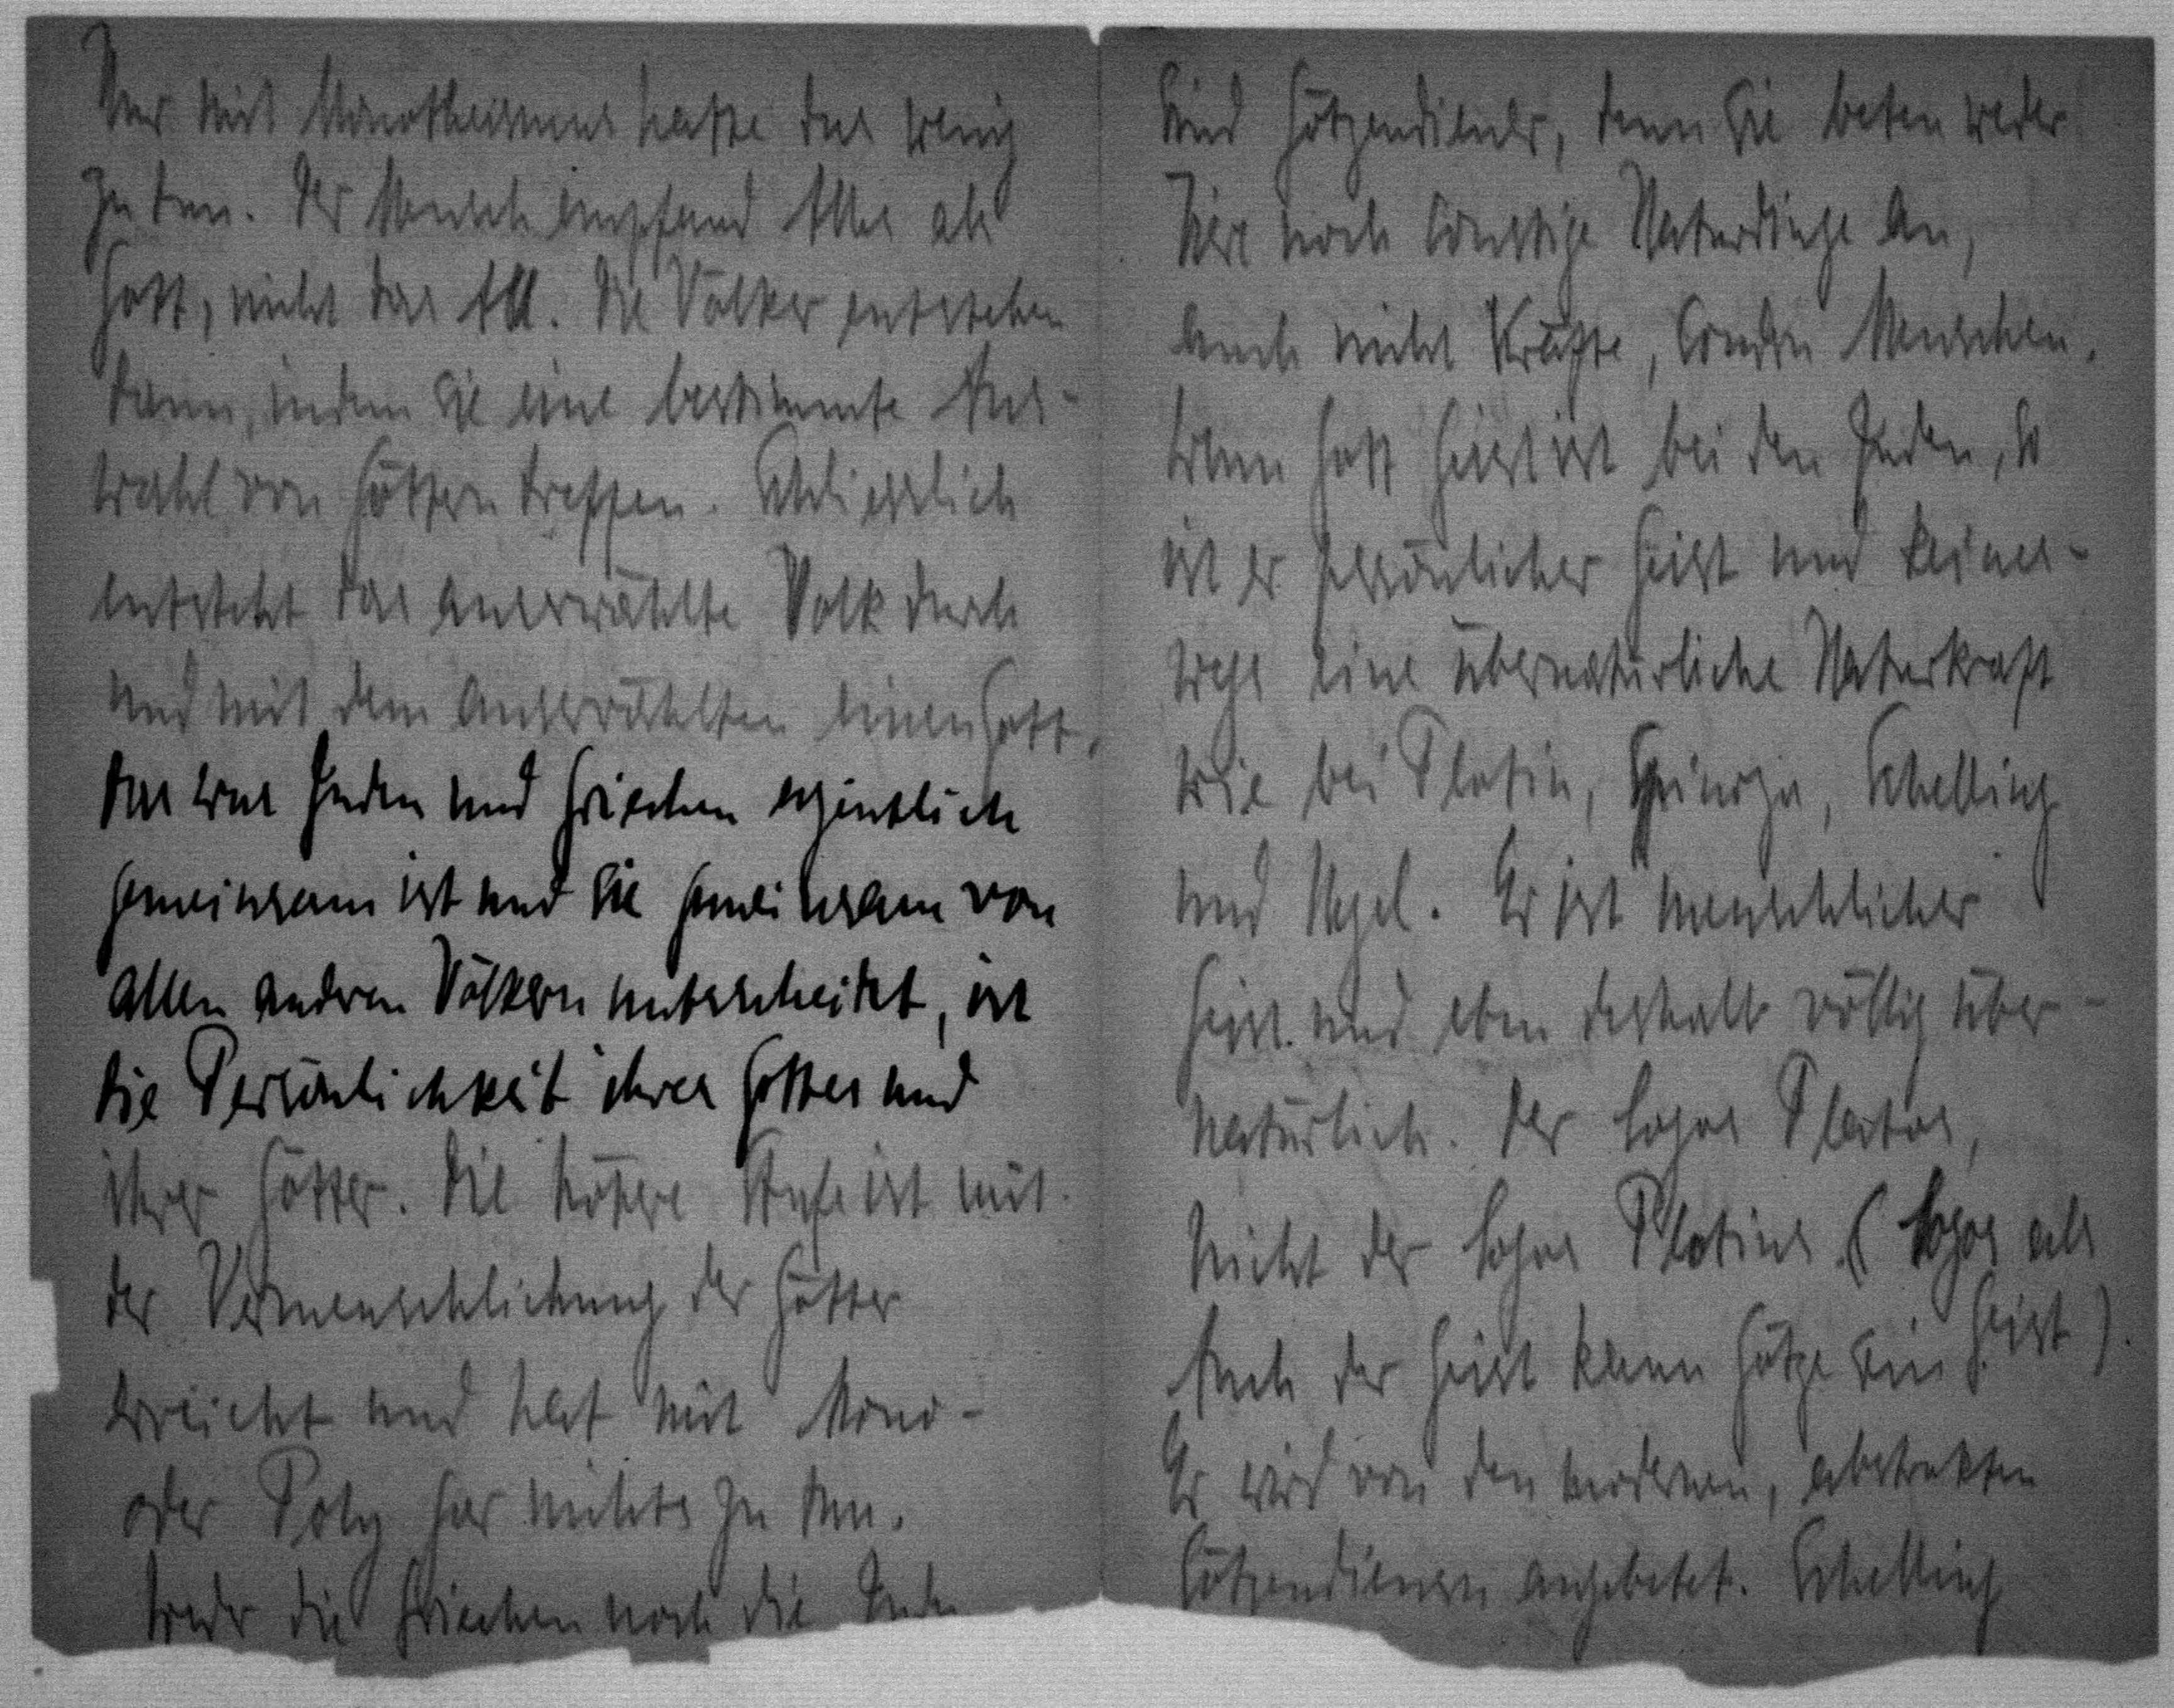 Nur mit Monotheismus hatte das wenig
zu tun. Der Mensch empfand Alles als
Gott, nicht das All. Die Völker entstehen
dann, indem sie eine bestimmte Aus-
wahl von Göttern treffen. Schliesslich
entsteht das auserwählte Volk durch
und mit dem auserwählten einen Gott.
Das was Juden und Griechen eigentlich
gemeinsam ist und sie gemeinsam von
allen andren Völkern unterscheidet, ist
die Persönlichkeit ihres Gottes und
ihrer Götter. Die höhere Stufe ist mit
der Vermenschlichung der Götter
erreicht und hat mit Mono-
oder Poly gar nichts zu tun.
Weder die Griechen noch die Juden
sind Götzendiener, denn sie beten weder
Tiere noch sonstige Naturdinge an,
auch nicht Kräfte, sondern Menschen.
Wenn Gott Geist ist bei den Juden, so
ist er persönlicher Geist und keines-
wegs eine übernatürliche Naturkraft
wie bei Plotin, Spinoza, Schelling
und Hegel. Er ist menschlicher
Geist und eben deshalb völlig über-
natürlich. Der Logos Platos,
nicht der Logos Plotins. (Logos als
Geist).
Auch der Geist kann Götze sein
Er wird von den modernen, abstrakten
Götzendienern angebetet. Schelling